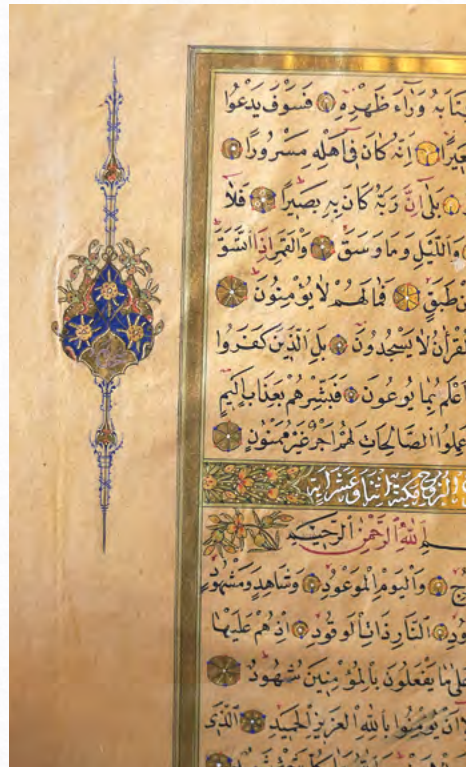 تَابَهُ وَرَآءَ ظَهْرِهِ فَسَوْفَ يَدْعُوا
عِيرًا اِنَّهُ كَانَ فِى اَهْلِهِ مَسْرُورًا
بَلٰى اِنَّ رَبَّهُ كَانَ بِهِ بَصِيرًا فَلَا
وَالَّيْلِ وَمَا وَسَقَ وَالْقَمَرِ اِذَا اتَّسَقَ
طَبَقٍ فَمَا لَهُمْ لَا يُؤْمِنُونَ
لْقُرْاٰنُ لَا يَسْجُدُونَ بَلِ الَّذِينَ كَفَرُوا
اَعْلَمُ بِمَا يُوعُونَ فَبَشِّرْهُمْ بِعَذَابٍ اَلِيمٍ
عَمِلُوا الصَّالِحَاتِ لَهُمْ اَجْرٌ غَيْرُ مَمْنُونٍ
البروج مكية
اللّٰهِ الرَّحْمٰنِ الرَّحِيمِ
وَالْيَوْمِ الْمَوْعُودِ وَشَاهِدٍ وَمَشْهُودٍ
النَّارِ ذَاتِ الْوَقُودِ اِذْ هُمْ عَلَيْهَا
عَلٰى مَا يَفْعَلُونَ بِالْمُؤْمِنِينَ شُهُودٌ
اَنْ يُؤْمِنُوا بِاللّٰهِ الْعَزِيزِ الْحَمِيدِ الَّذِى